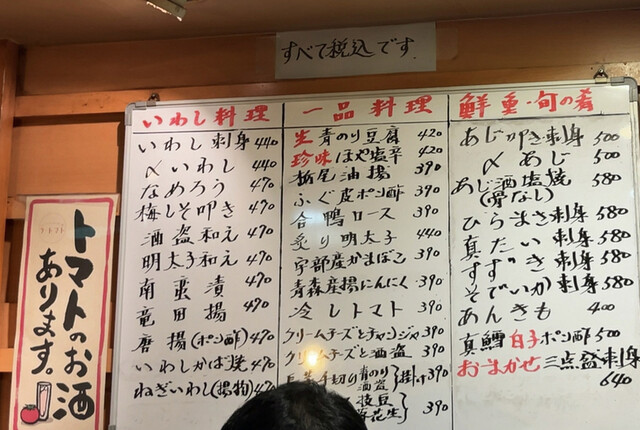 すべて税込です
いわし料理
いわし刺身 440
〆いわし 440
なめろう 470
梅しそ叩き 470
酒盗和え 470
明太子和え 470
南蛮漬 470
竜田揚 470
唐揚(ポン酢) 470
いわしかば焼 470
ねぎいわし(揚物) 470
一品料理
生青のり豆腐 420
珍味ほや塩辛 420
栃尾油揚 390
ふぐ皮ポン酢 390
合鴨ロース 390
炙り明太子 440
宇部産かまぼこ 390
青森産揚にんにく 390
冷しトマト 390
クリームチーズとチャンジャ 390
クリームチーズと酒盗 390
手切り
青のり
酒盗
掛け 390
枝豆
花生
390
鮮重・旬の肴
あじ叩き刺身 500
〆あじ 500
あじ酒塩焼 580
(骨なし)
ひらまさ刺身 580
真たい刺身 580
すずき刺身 580
そでいか刺身 580
あんきも 400
真鱈白子ポン酢 500
おまかせ三点盛刺身
640
トマトのお酒
あります。